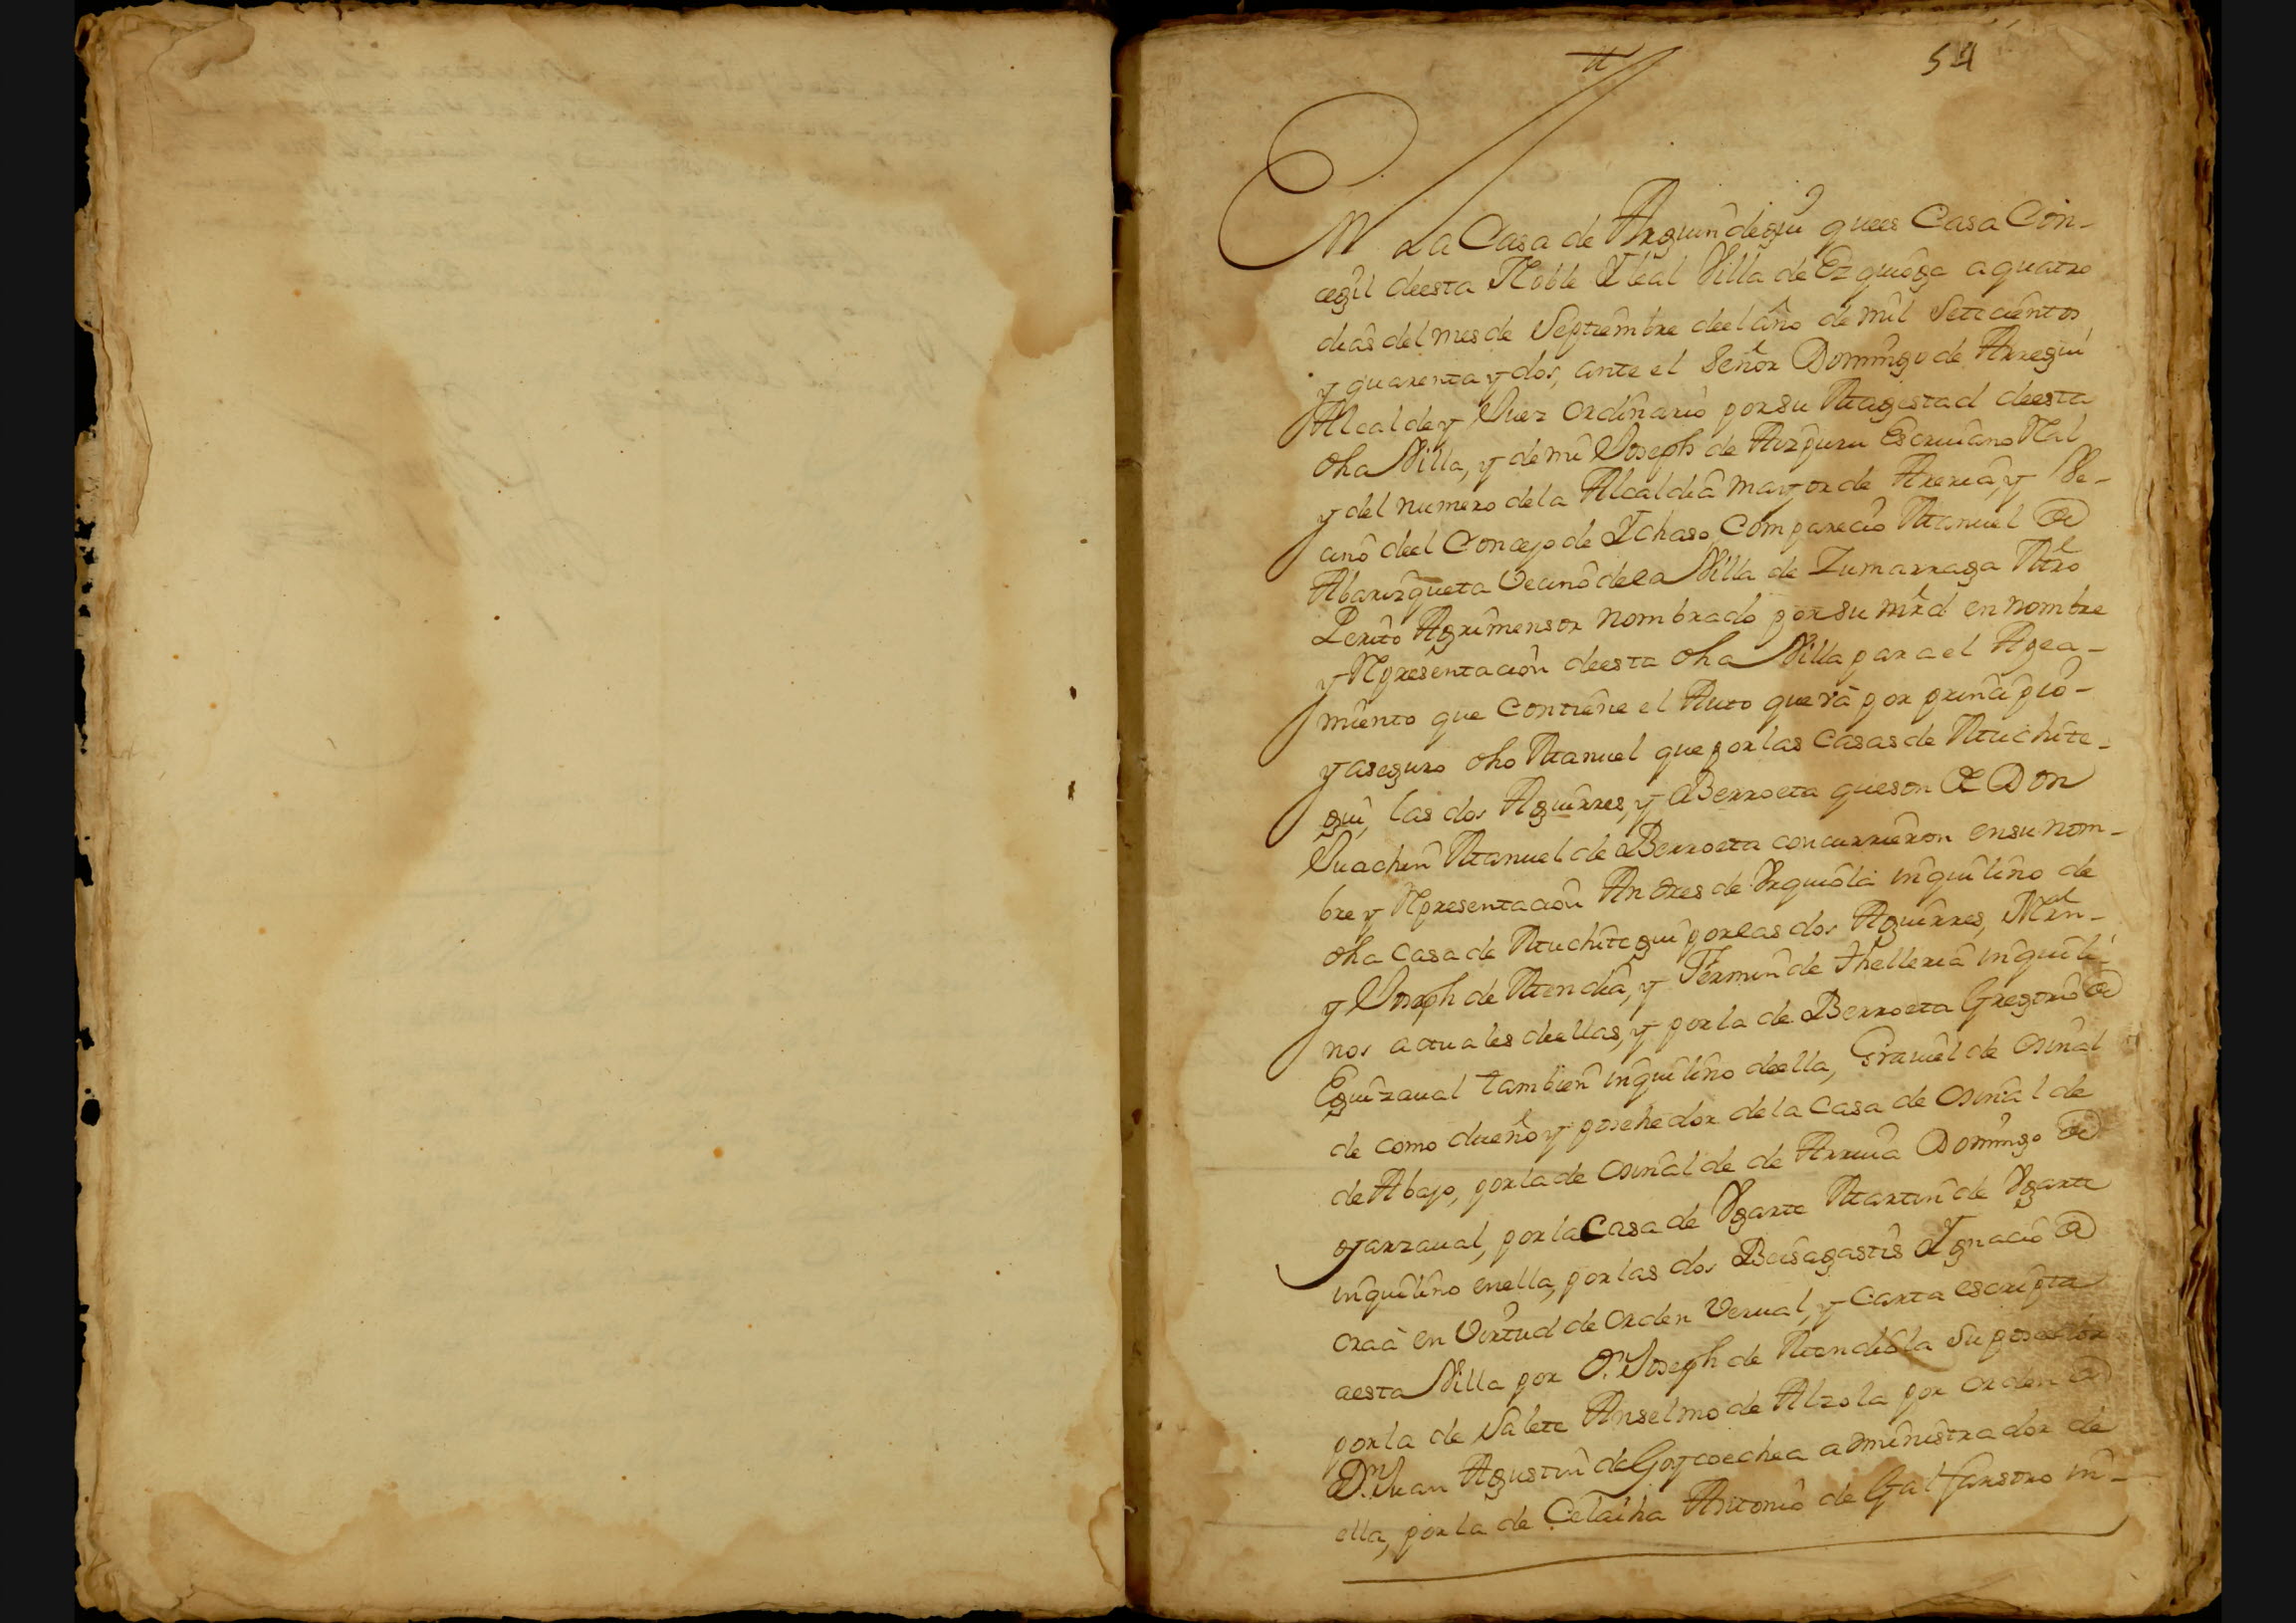 54
En La Casa de Arguindegui que es Casa Con-
cegil deesta Noble Y leal Villa de Ezquioga a quatro
dias del mes de Septiembre deel año de mil Setecientos
y quarenta y dos, ante el Señor Domingo de Arregui
Alcalde y Juez ordinario por su Magestad deesta
dha Villa, y de mi Joseph de Aizpuru Escriuano Rl
y del numero de la Alcaldia mayor de Areria, y Ve-
cino deel Concejo de Ychaso, Comparecio Manuel de
Abarizqueta Vecino de la Villa de Zumarraga Mro
Perito Agrimensor nombrado por su mrd en nombre
y Representacion deesta dha Villa para el Apea-
miento que contiene el Auto que và por principio-
y aseguro dho Manuel que por las casas de Muchite-
gui, las dos Aguirres, y Berroeta que son de Don
Juachin Manuel de Berroeta concurrieron en su nom-
bre y Representacion Andres de Urquiola inquilino de
dha casa de Muchitegui por las dos Aguirres, Mrn-
y Joseph de Mendia, y Fermin de Thelleria inquili-
nos actuales deellas, y por la de Berroeta Gregorio de
Eguizaual tambien inquilino deella, Grauiel de osinal
de como dueño y posehedor de la casa de osinal de
de Abajo, por la de osinal de de Arriua Domingo de
oyarzaual, por la Casa de Ugarte Martin de Ugarte
inquilino en ella, por las dos Beisagastis Ygnacio de
oraà en Virtud de orden Verual, y Carta escripta
aesta Villa por Dn Joseph de Mendiola su poseedor
por la de Salete Anselmo de Alzola por orden de
Dn Juan Agustin de Goycoechea administrador de
ella, por la de Celaiha Antonio de Galfarsoro in-